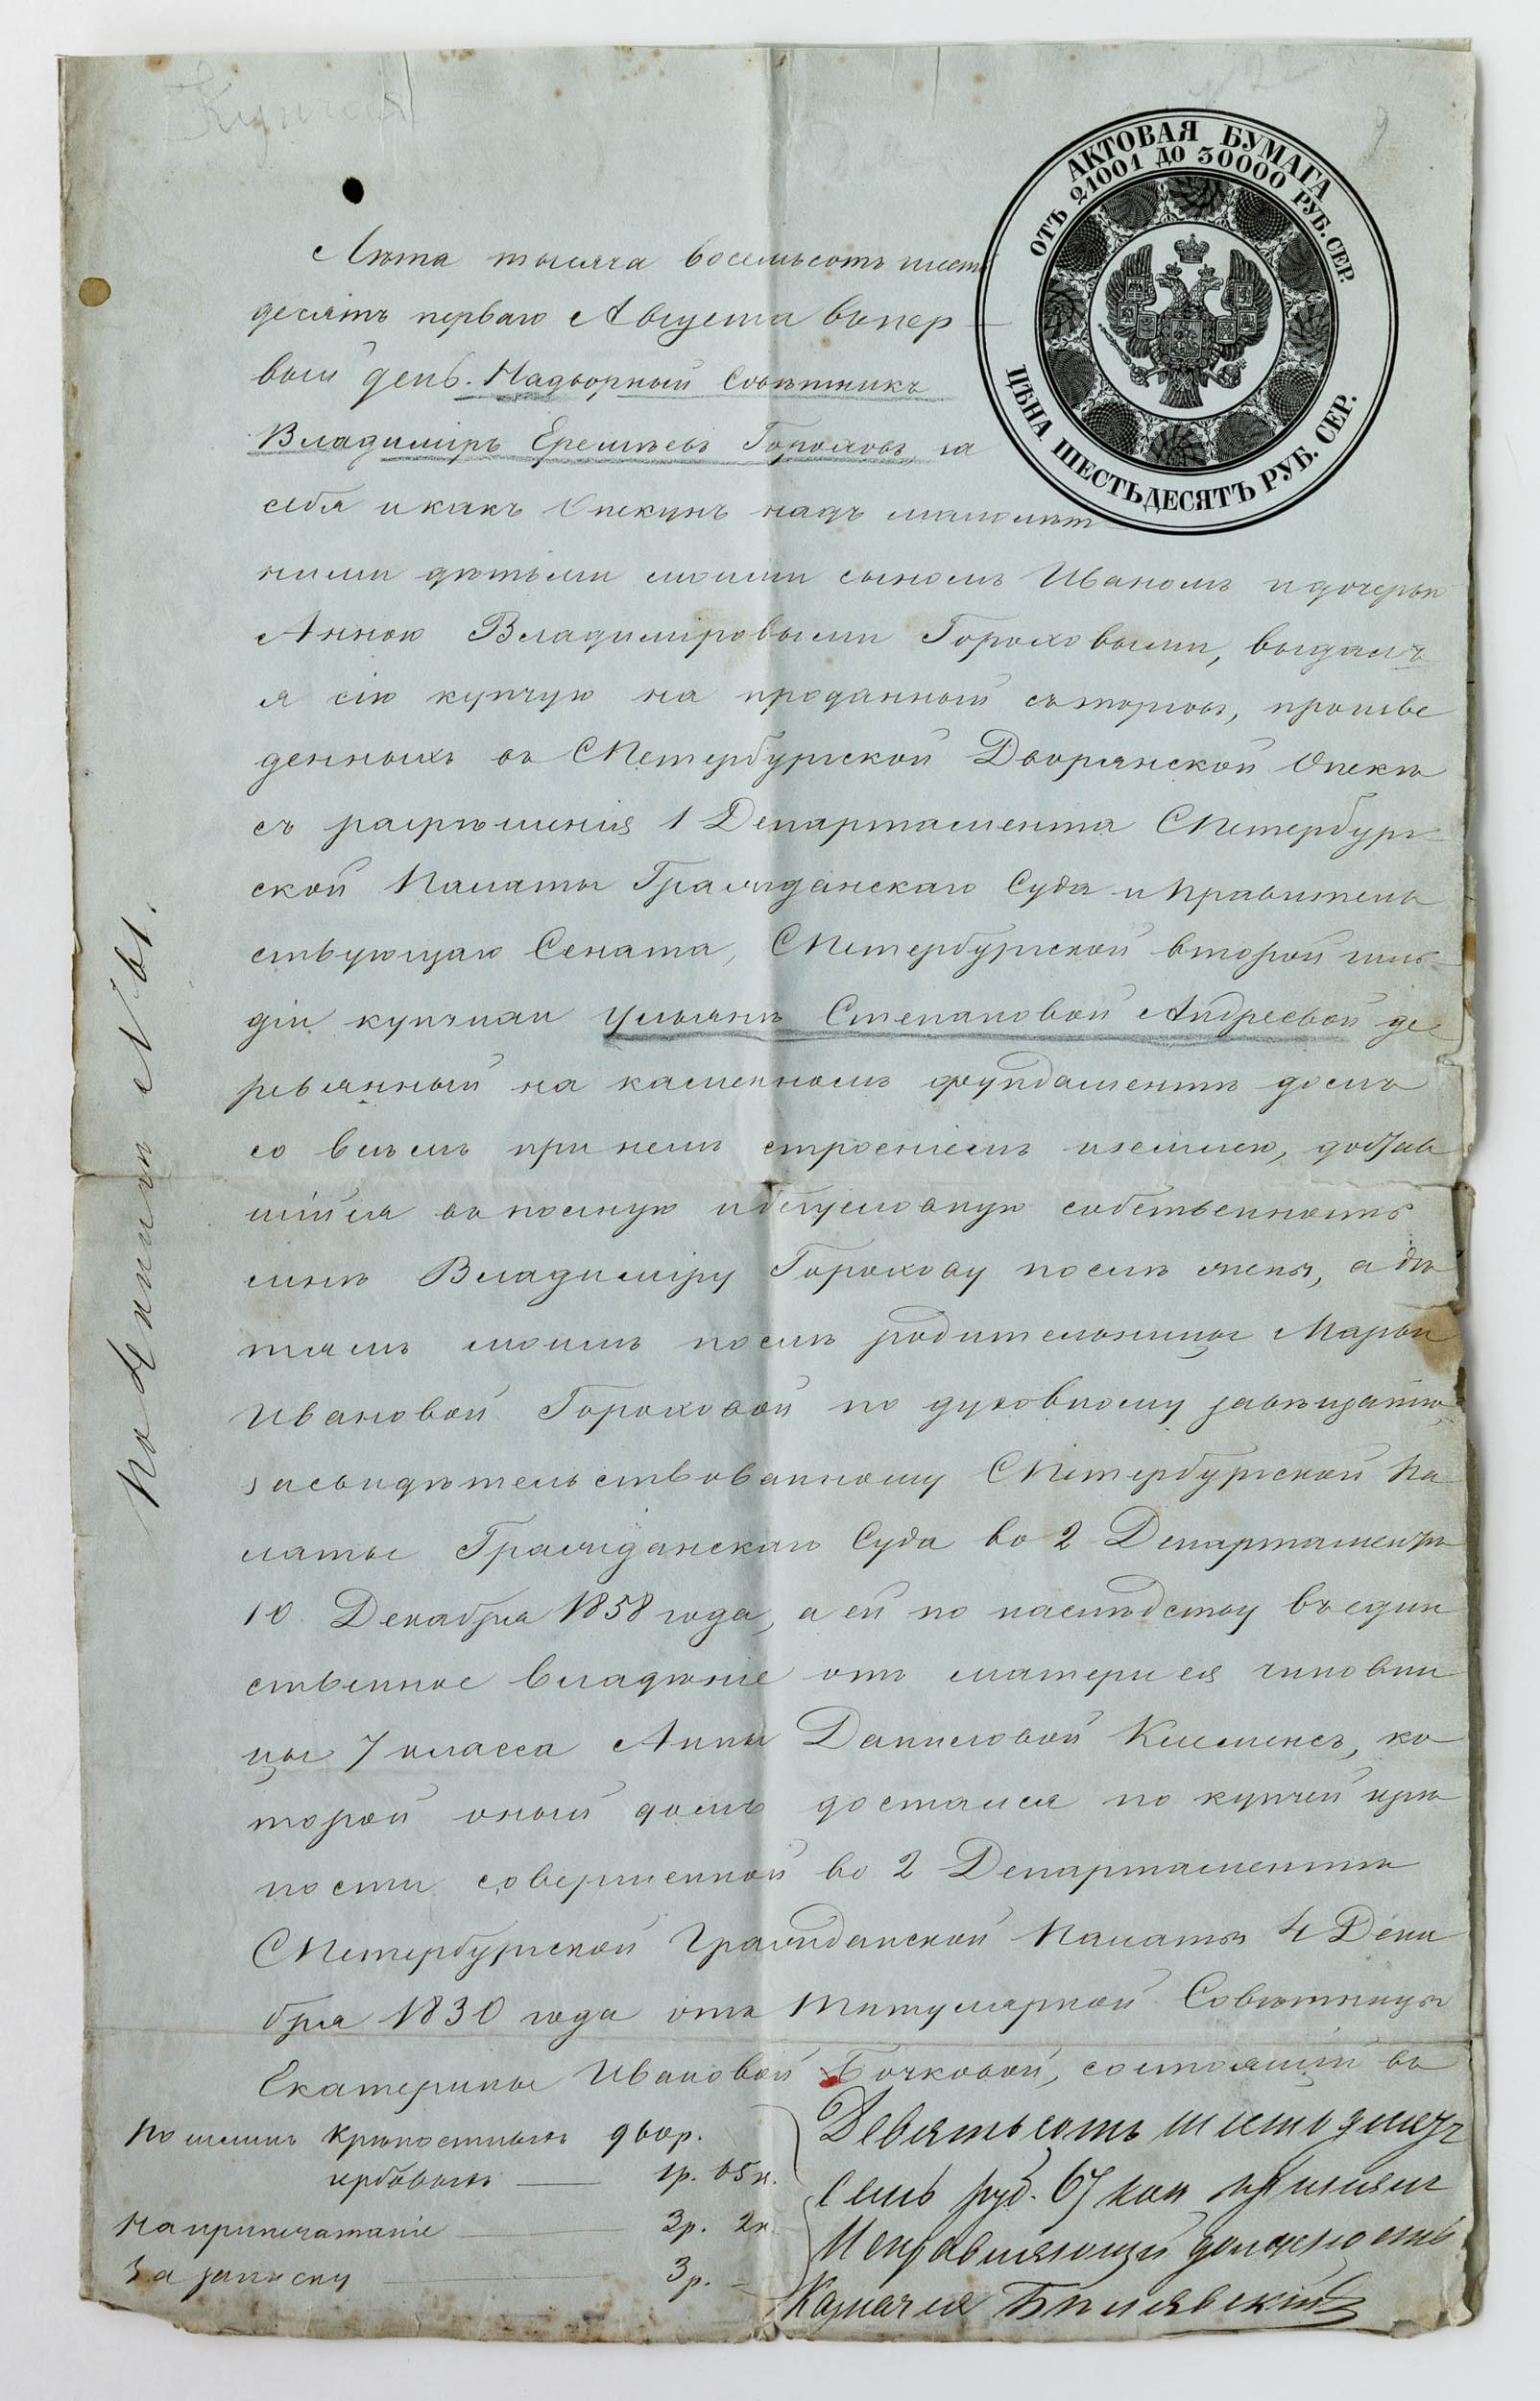 Купчая
АКТОВАЯ БУМАГА
ОТЪ 21001 ДО 30000 РУБ. СЕР.
ЦѢНА ШЕСТЬДЕСЯТЪ РУБ. СЕР.
Лѣта тысяча восемьсотъ шесть
десятъ перваго Августа въ пер
вый день. Надворный Совѣтникъ
Владиміръ Еремѣевъ Гороховъ, за
себя и какъ Опекунъ надъ малолѣт
ними дѣтьми моими сыномъ Иваномъ и дочерью
Анною Владиміровыми Гороховыми, выдалъ
я сію купчую на проданный съ торговъ, произве
денныхъ въ СПетербургской Дворянской Опекѣ
съ разрѣшенія 1 Департамента СПетербург
ской Палаты Гражданскаго Суда и Правитель
ствующаго Сената, СПетербургской второй гиль
діи купчихи Ульянѣ Степановой Андреевой де
ревянный на каменномъ фундаментѣ домъ
со всѣмъ при немъ строеніемъ и землею, достав
шійся въ полную и безусловную собственность
мнѣ Владиміру Горохову послѣ жены, а дѣ
тямъ моимъ послѣ родительницы Марьи
Ивановой Гороховой по духовному завѣщанію,
засвидѣтельствованному СПетербургской Па
латы Гражданскаго Суда во 2 Департаментѣ
10 Декабря 1858 года, а ей по наслѣдству въ един
ственное владѣніе отъ матери ея чиновни
цы 7 класса Анны Даниловой Клеменсъ, ко
торой оный домъ достался по купчей крѣ
пости совершенной во 2 Департаментѣ
СПетербургской Гражданской Палаты 4 Дека
бря 1830 года отъ Титулярной Совѣтницы
Екатерины Ивановой Бочковой, состоящій въ
Пошлинъ крѣпостныхъ двор.
гербовыхъ — 1р. 65к.
На припечатаніе — 3р. 2к.
За записку — 3р. —
Девятьсотъ шестьдесятъ
семь руб. 67 коп. принялъ
Исправляющій должность
Казначея Билявскій
По Книгѣ №61.